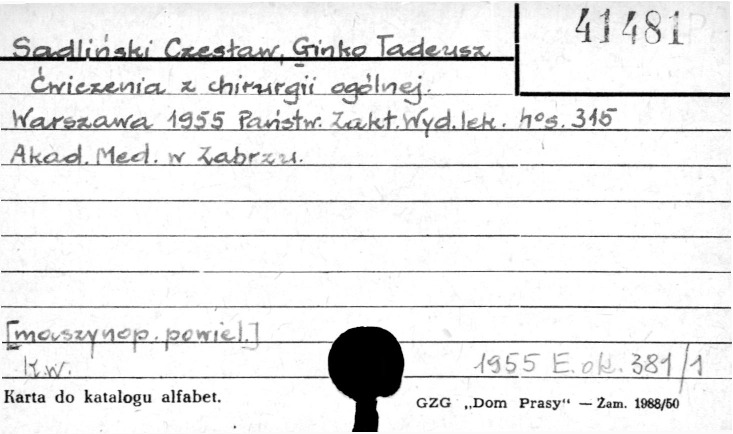 41481
Sadliński Czesław, Ginko Tadeusz
Ćwiczenia z chirurgii ogólnej.
Warszawa 1955 Państw. Zakt. Wyd. lek. s. 315
Akad. Med. w Zabrzu.
[maszynop. powiel.]
K.w. 1955 E. ok. 381/1
Karta do katalogu alfabet.
GZG „Dom Prasy" — Zam. 1988/50